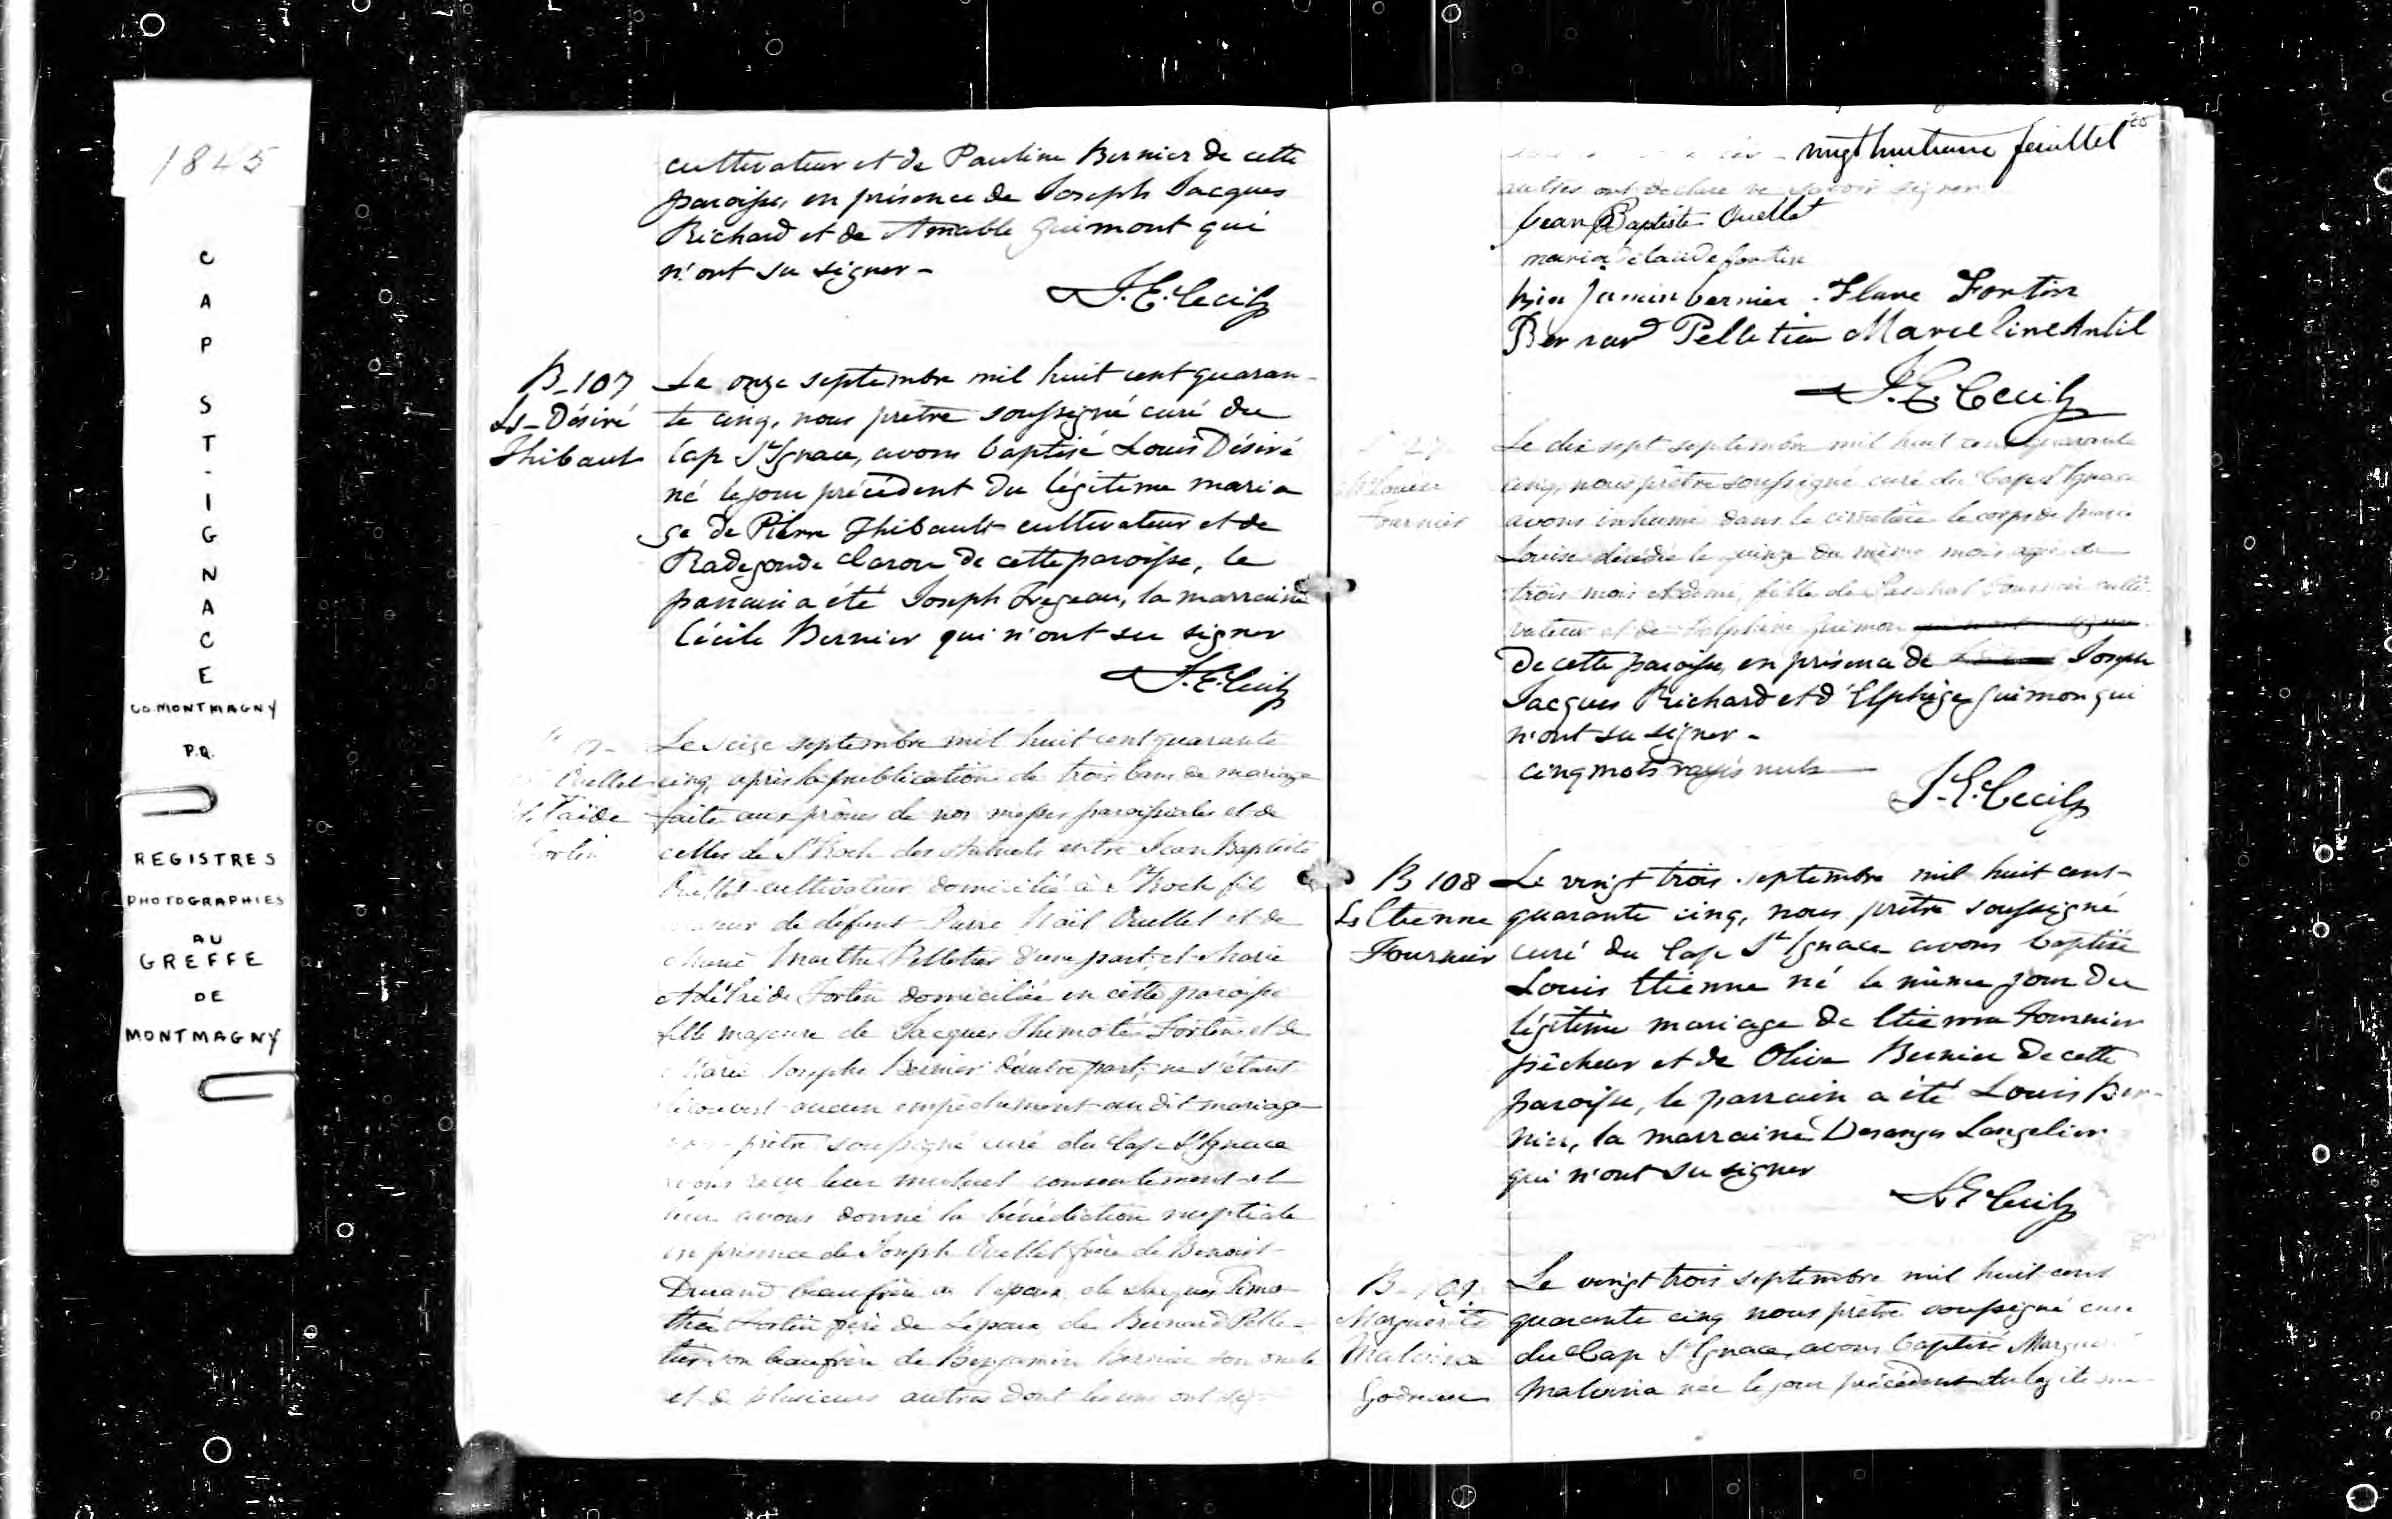 1845
CAP ST-IGNACE
CO. MONTMAGNY
P.Q.
REGISTRES
PHOTOGRAPHIES
AU
GREFFE
DE
MONTMAGNY
cultivateur et de Pauline Bernier de cette
paroisse, en présence de Joseph Jacques
Richard et de Amable Guimont qui
n'ont su signer -
J. E. Cecil
B_107
Ls-Désiré
Thibaut
Le onze septembre mil huit cent quaran-
te cinq, nous prêtre soussigné curé du
Cap St Ignace, avons baptisé Louis Désiré
né le jour précédent du légitime maria
ge de Pierre Thibault cultivateur et de
Radegonde Caron de cette paroisse, le
parrain a été Joseph Fregeau, la marraine
Cécile Bernier qui n'ont su signer
J. E. Cecil
Ouellet
Fortin
Le seize septembre mil huit cent quarante
cinq, après la publication de trois bans de mariage
faite aux prônes de nos messes paroissiales et de
celles de St Roch des Aulnets entre Jean Baptiste
Ouellet cultivateur domicilié à St Roch fils
de défunt Pierre Noël Ouellet et de
Marie Marthe Pelletier d'une part, et Marie
Adélaïde Fortin domiciliée en cette paroisse
fille majeure de Jacques Thimoté Fortin et de
Marie Josephe Bernier d'autre part; ne s'étant
découvert aucun empêchement au dit mariage
prêtre soussigné curé du Cap St Ignace
avons reçu leur mutuel consentement et
leur avons donné la bénédiction nuptiale
en présence de Joseph Ouellet frère de Benoist
Durand beaufrère de l'époux, de Jacques Timo
thée Fortin père de l'épouse de Bernard Pelle-
tier son beaufrère de Benjamin Bernier son oncle
et de plusieurs autres dont les uns ont sig-
vingt huitieme feuillet
autres ont déclaré ne savoir signer
Jean Baptiste Ouellet
maria delaide fortin
binjamin bernier. Flave Fortin
Bernard Pelletier Marceline Antil
J. E. Cecil
Louise
Fournier
Le dix sept septembre mil huit cent quarante
cinq, nous prêtre soussigné curé du Cap St Ignace
avons inhumé dans le cimetière le corps de Marie
Louise décédée le quinze du même mois agée de
trois mois et demi, fille de Paschal Fournier culti-
vateur et de Delphine Guimon
De cette paroisse, en présence de Joseph
Jacques Richard et d'Elphège Guimon qui
n'ont su signer -
cinq mots rayés nuls
J. E. Cecil
B 108
Ls Etienne
Fournier
Le vingt trois septembre mil huit cent-
quarante cinq, nous prêtre soussigné
curé du Cap St Ignace avons baptisé
Louis Etienne né le même jour du
légitime mariage de Etienne Fournier
pêcheur et de Olive Bernier de cette
paroisse, le parrain a été Louis Ber-
nier, la marraine Desanges Langelier
qui n'ont su signer
J. E. Cecil
B-109
Marguerite
Malvina
Godreau
Le vingt trois septembre mil huit cent
quarante cinq nous prêtre soussigné curé
du Cap St Ignace, avons baptisé Margue
Malvina née le jour précédent du légitime